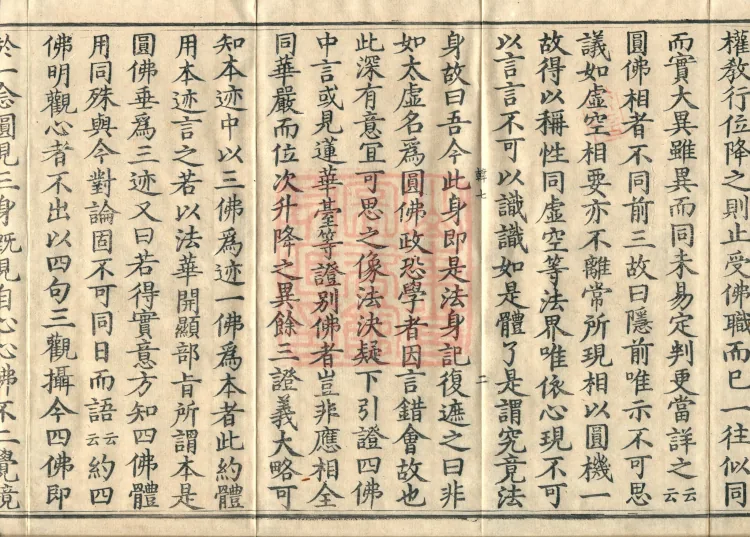 權教行位降之則止受佛職而巳一往似同
而實大異雖異而同未易定判更當詳之云云
圓佛相者不同前三故曰隱前唯示不可思
議如虛空相要亦不離常所現相以圓機一
故得以稱性同虛空等法界唯依心現不可
以言言不可以識識如是體了是謂究竟法
身故曰吾今此身即是法身記復遮之曰非
如太虛名爲圓佛政恐學者因言錯會故也
此深有意宜可思之像法決疑下引證四佛
中言或見蓮華臺等證別佛者豈非應相全
同華嚴而位次升降之異餘三證義大略可
知本迹中以三佛爲迹一佛爲本者此約體
用本迹言之若以法華開顯部旨所謂本是
圓佛垂爲三迹又曰若得實意方知四佛體
用同殊與今對論固不可同日而語云云約四
佛明觀心者不出以四句三觀攝今四佛即
於一念圓見三身旣見自心心佛不二覺境